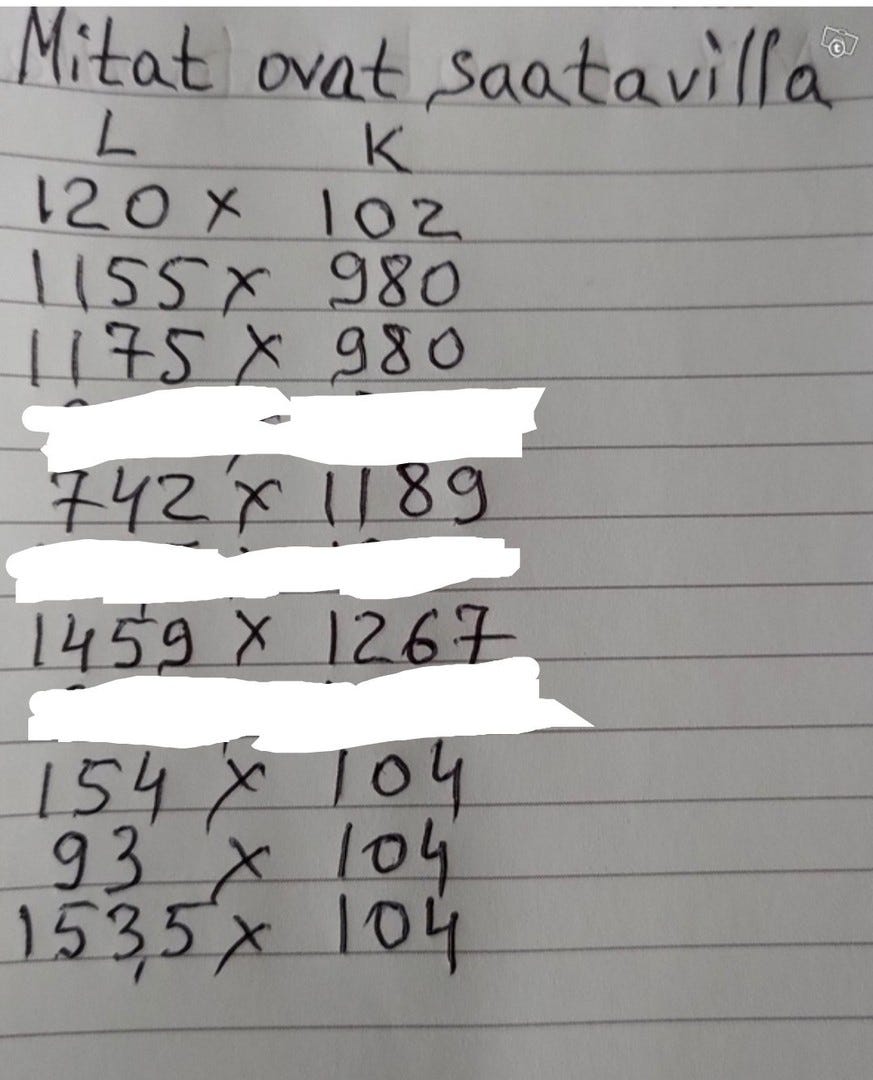 Mitat ovat saatavilla
L K
120 x 102
1155 x 980
1175 x 980
742 x 1189
1459 x 1267
154 x 104
93 x 104
153,5 x 104